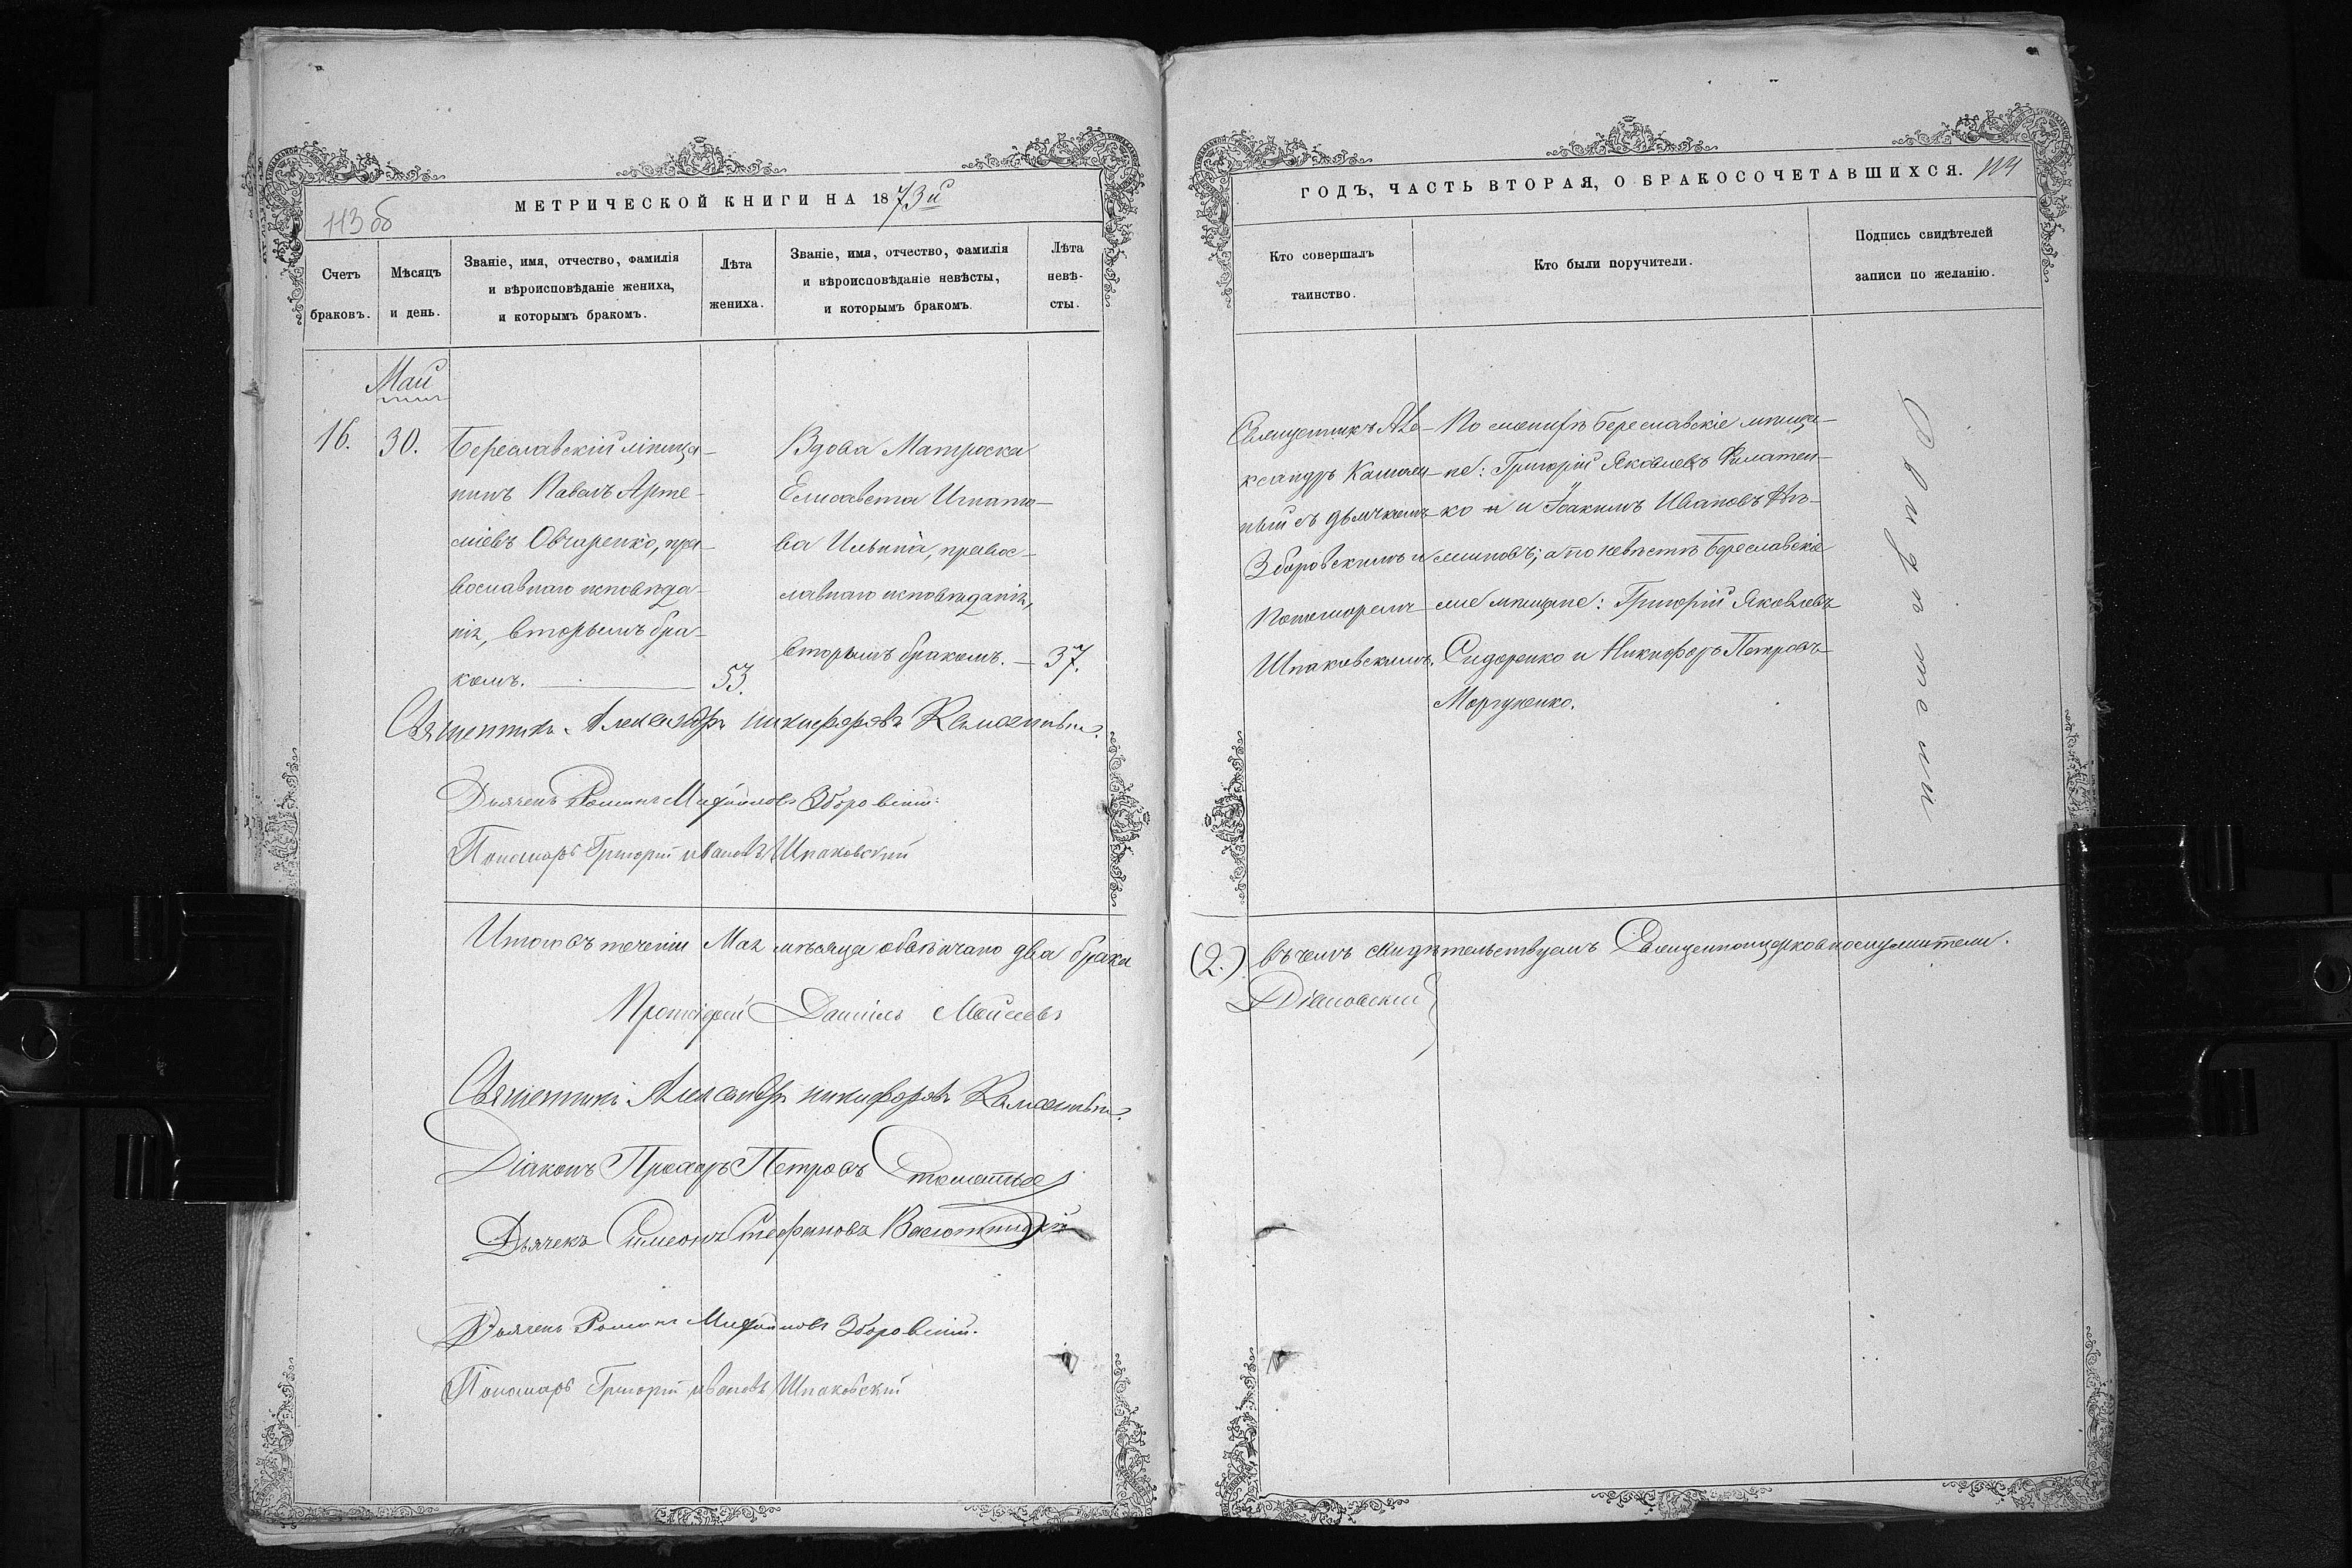 МЕТРИЧЕСКОЙ КНИГИ НА 1873й
113об
Счетъ
браковъ.
Мѣсяцъ
и день.
Званіе, имя, отчество, фамилія
и вѣроисповѣданіе жениха,
и которымъ бракомъ.
Лѣта
жениха.
Званіе, имя, отчество, фамилія
и вѣроисповѣданіе невѣсты,
и которымъ бракомъ.
Лѣта
невѣ-
сты.
Май
16.
30.
Береславскій мѣща-
нинъ Павелъ Арте-
міевъ Овчаренко, пра-
вославнаго исповѣда-
нія, вторымъ бра-
комъ. — 53.
Вдова Матроска
Елисавета Игнато-
ва Ильина, правос-
лавнаго исповѣданія,
вторымъ бракомъ. — 37.
Священникъ Александръ Никифоровъ
Дьячекъ Романъ Зборовскій.
Пономарь Григорій Ивановъ Шпаковскій
Итого въ теченіи Мая мѣсяца обвѣнчано два брака
Протоіерей Даніилъ Моисеевъ
Священникъ Александръ Никифоровъ
Діаконъ Прохоръ Петровъ
Дьячекъ Симеонъ Стефановъ
Дьячекъ Романъ Зборовскій.
Пономарь Григорій Ивановъ Шпаковскій
ГОДЪ, ЧАСТЬ ВТОРАЯ, О БРАКОСОЧЕТАВШИХСЯ. 114
Кто совершалъ
таинство.
Кто были поручители.
Подпись свидѣтелей
записи по желанію.
Священникъ Але-
ксандръ
съ дьячкомъ
Зборовскимъ и
Пономаремъ
Шпаковскимъ.
По женихѣ Береславскіе мѣща-
не: Григорій Яковлевъ Филатен-
ко и Іоакимъ Ивановъ
а по невѣстѣ Береславскіе
мѣщане: Григорій Яковлевъ
Сидоренко и Никифоръ Петровъ
Моргуненко.
Свидѣтели
(2.) въ чемъ свидѣтельствуемъ Священноцерковнослужители.